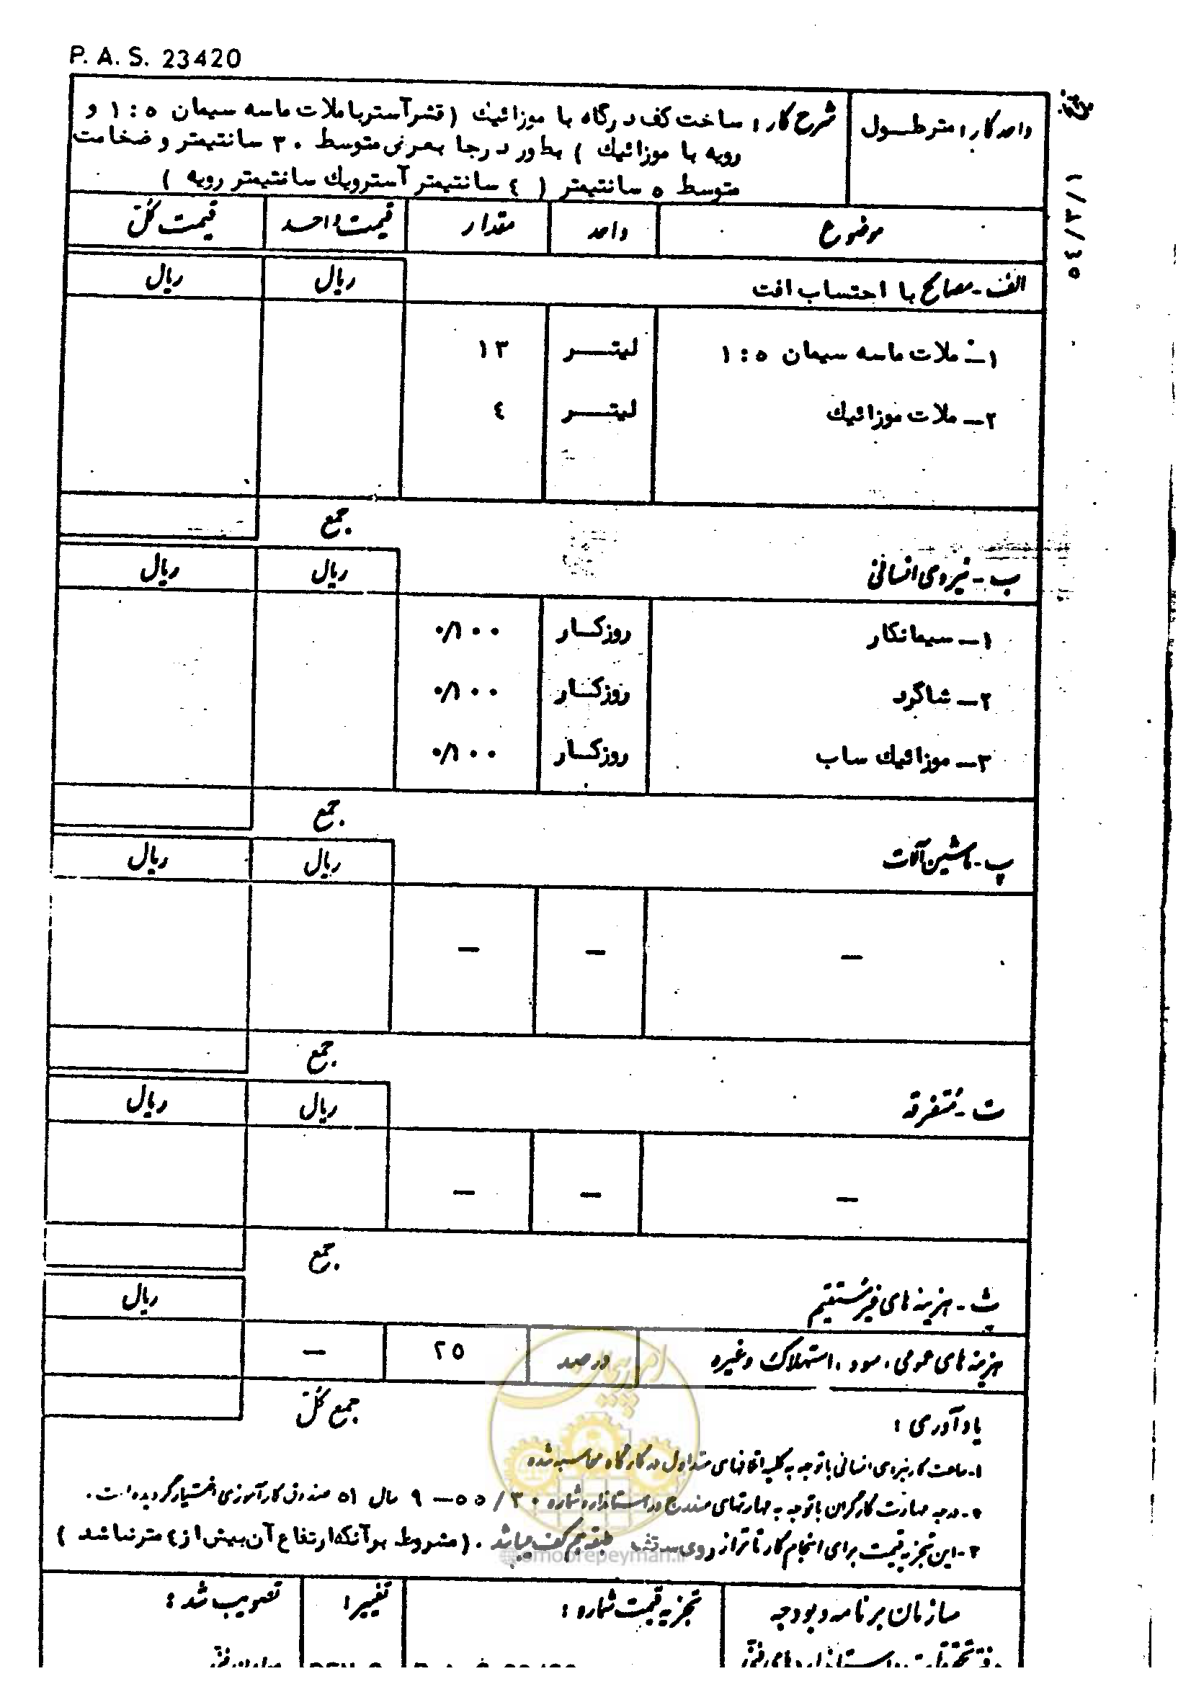 P. A. S. 23420
واحد کار : متر طول
شرح کار : ساخت کف درگاه با موزائیك (قشر آستر با ملات ماسه سیمان ۱:۵ و
رویه با موزائیك ) بطور درجا بعرض متوسط ۳۰ سانتیمتر و ضخامت
متوسط ۵ سانتیمتر ( ٤ سانتیمتر آستر ویك سانتیمتر رویه )
۱/۳/٤٥
موضوع واحد مقدار قیمت واحد قیمت کل
الف - مصالح با احتساب افت ریال ریال
۱- ملات ماسه سیمان ۱:۵ لیتر ۱۳
۲- ملات موزائیك لیتر ٤
جمع
ب - نیروی انسانی ریال ریال
۱- سیمانکار روزکار ۰/۱۰۰
۲- شاگرد روزکار ۰/۱۰۰
۳- موزائیك ساب روزکار ۰/۱۰۰
جمع
پ - ماشین آلات ریال ریال
— — —
جمع
ت - متفرقه ریال ریال
— — —
جمع
ث - هزینه های غیر مستقیم ریال
هزینه های عمومی ، سود ، استهلاک وغیره درصد ۲۵ —
جمع کل
یادآوری :
۱- ساعت کار نیروی انسانی با توجه به کلیه اتفاقهای متداول در کارگاه محاسبه شده
۲- درجه مهارت کارگران با توجه به مهارتهای مندرج در استاندارد شماره ۳۰ / ۵۵ – ۹ سال ۵۱ صندوق کارآموزی اختیار گردیده است .
۳- این تجزیه قیمت برای انجام کار تا تراز روی سقف طبقه هم کف میباشد . (مشروط بر آنکه ارتفاع آن بیش از ٤ متر نباشد )
امور پیمان
@omoorepeyman.ir
سازمان برنامه و بودجه تجزیه قیمت شماره : تغییر : تصویب شد :